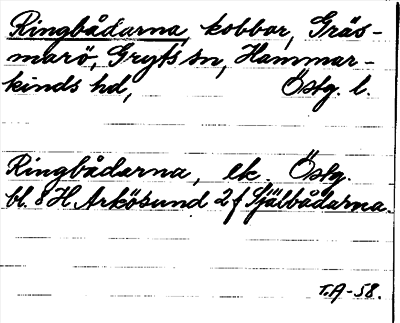 Ringbådarna, kobbar, Gräs-
marö, Gryts sn, Hammar-
kinds hd, Östg. l.
Ringbådarna, ek. Östg.
bl. 8 H. Arkösund 2 f Själbådarna.
T.A-58.